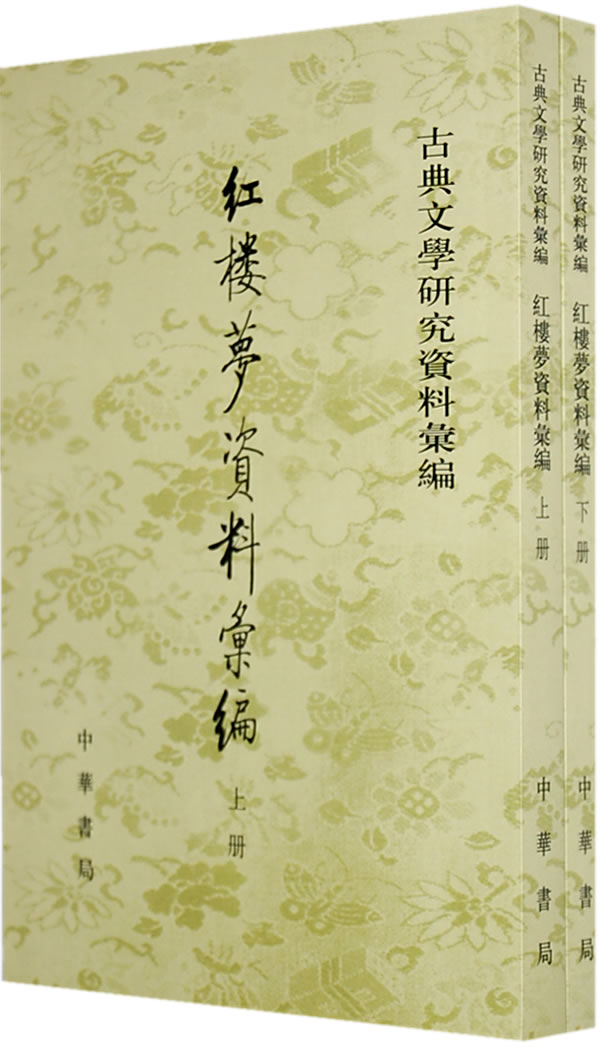 古典文學研究資料彙編
红楼夢資料彙編
上册
中華書局
古典文學研究資料彙編
红樓夢資料彙編
上册
中華書局
古典文學研究資料彙編
红樓夢資料彙編
下册
中華書局